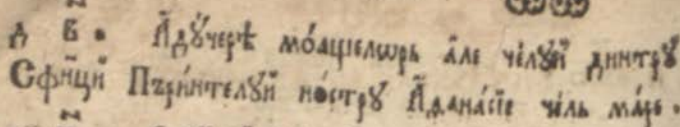 д҃ в҃ • А҆дꙋ́черѣ мо́ащїелѡрь а҆ле че́лꙋй динтрꙋ
Сфи́нцїй Пъри́нтелꙋй но́стрꙋ А҆ѳана́сїе че́ль ма́ре •